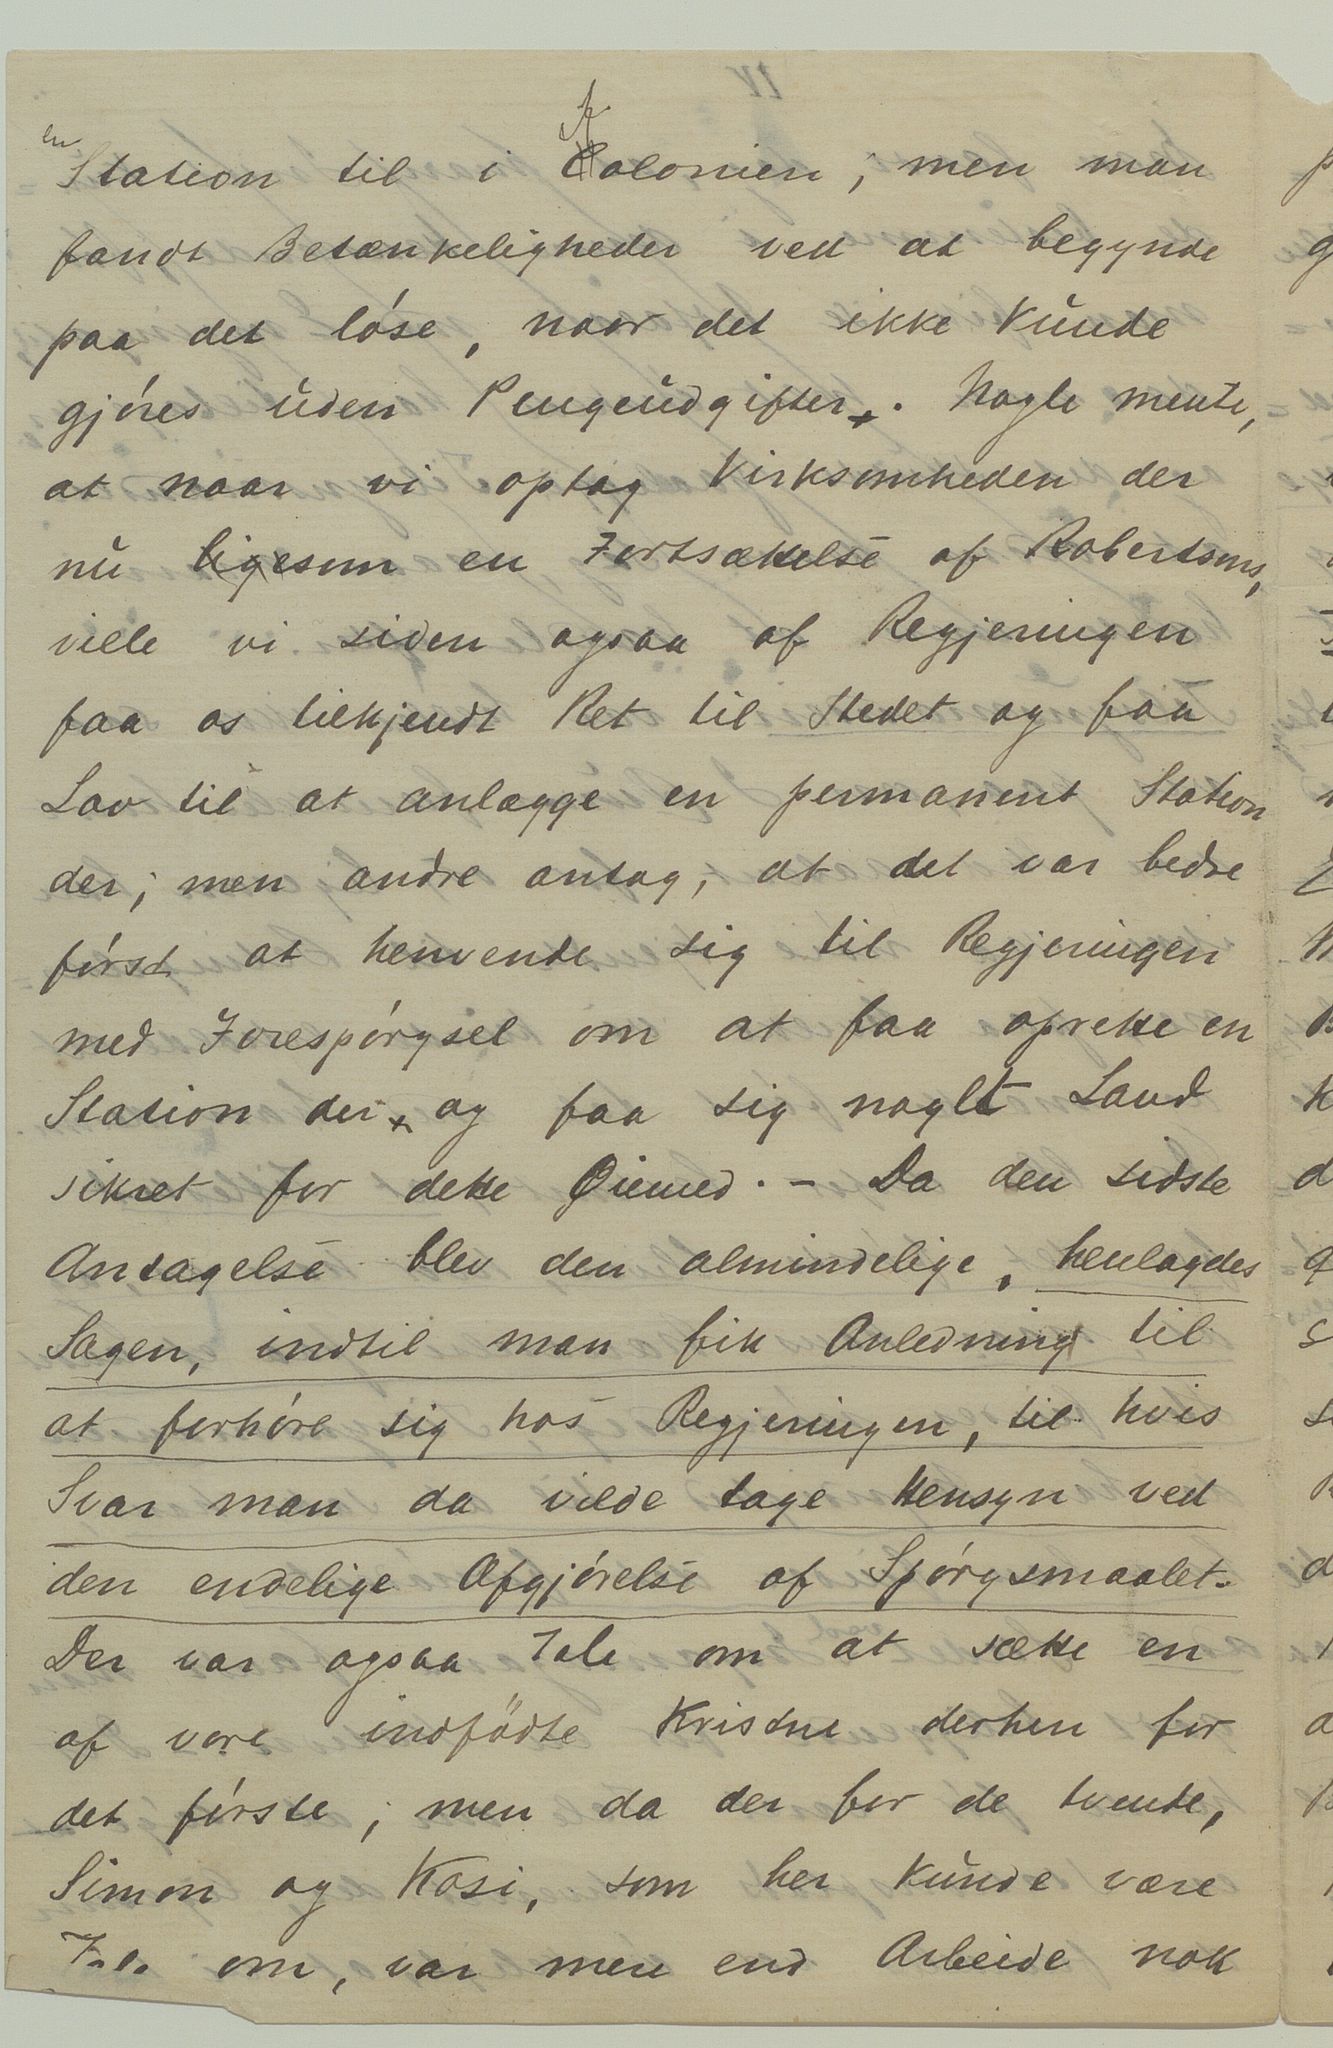 en Station til i Kolonien; men man
fandt Betænkeligheder ved at begynde
paa det löse, naar det ikke kunde
gjöres uden Pengeudgifter. Nogle mente,
at naar vi optog Virksomheden der
nu ligesom en Fortsættelse af Robertsons,
ville vi siden ogsaa af Regjeringen
faa os tilkjendt Ret til Stedet og faa
Lov til at anlægge en permanent Station
der; men andre antog, at det var bedre
först at henvende sig til Regjeringen
med Forespörgsel om at faa oprette en
Station der og faa sig noglt Land
sikret for dette Øiemed. - Da den sidste
Antagelse blev den almindelige, henlagdes
Sagen, indtil man fik Anledning til
at forhöre sig hos Regjeringen, til hvis
Svar man da vilde tage Hensyn ved
den endelige Afgjörelse af Spörgsmaalet.
Der var ogsaa Tale om at sætte en
af vore indfödte Kristne derhen for
det förste; men da der for de tvende,
Simon og Kosi, som her kunde være
om, var mere end Arbeide nok